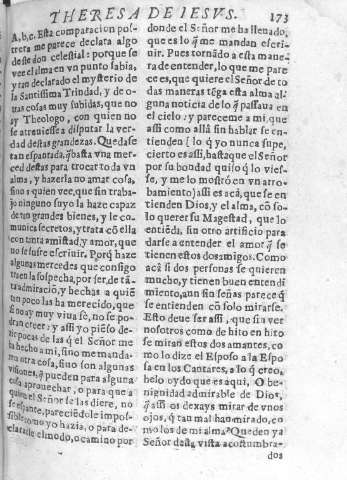 THERESA DE IESVS. 173
A, b, c. Esta comparacion pos-
trera me parece declara algo
deste don celestial: porque se
vee el alma en vn punto sabia,
y tan declarado el mysterio de
la Santissima Trinidad, y de o-
tras cosas muy subidas, que no
ay Theologo, con quien no
se atreuiesse a disputar la ver-
dad destas grandezas. Quedase
tan espantada, q̃ basta vna mer-
ced destas para trocar toda vn
alma, y hazerla no amar cosa,
sino a quien vee, que sin traba-
jo ninguno suyo la haze capaz
de tan grandes bienes, y le co-
munica secretos, y trata cõ ella
con tanta amistad, y amor, que
no se sufre escriuir. Porq̃ haze
algunas mercedes que consigo
traen la sospecha, por ser, de tã-
ta admiraciõ, y hechas a quiẽ
tan poco las ha merecido, que
si no ay muy viua fe, no se po-
dran creer: y assi yo piẽso de-
zir pocas de las q̃ el Señor me
ha hecho a mi, sino me manda-
ren otra cosa, sino son algunas
visiones, q̃ pueden para alguna
cosa aprouechar, o para que a
quien el Señor se las diere, no
se espante, pareciẽdole impos-
sible, como yo hazia, o para de-
clararle el modo, o camino por
donde el Señor me ha lleuado,
que es lo q̃ me mandan escri-
uir. Pues tornãdo a esta mane-
ra de entender, lo que me pare
ce es, que quiere el Señor de to
das maneras tẽga esta alma al-
guna noticia de lo q̃ passaua en
el cielo: y pareceme a mi, que
assi como allá sin hablar se en-
tienden (lo q̃ yo nunca supe,
cierto es assi, hasta que el Señor
por su bondad quiso q̃ lo vies-
se, y me lo mostró en vn arro-
bamiento) assi es acá, que se en
tienden Dios, y el alma, cõ so-
lo querer su Magestad, que lo
entiẽda, sin otro artificio para
darse a entender el amor q̃ se
tienen estos dos amigos. Como
acá si dos personas se quieren
mucho, y tienen buen entendi
miento, aun sin señas parece q̃
se entienden cõ solo mirarse.
Esto deue ser assi, que sin ver
nosotros como de hito en hito
se miran estos dos amantes, co
mo lo dize el Esposo a la Espo
sa en los Cantares, a lo q̃ creo,
helo oydo que es aqui, O be-
nignidad admirable de Dios,
q̃ assi os dexays mirar de vnos
ojos, q̃ tan mal han mirado, co
mo los de mi alma? Queden ya
Señor desta vista acostumbra-
dos